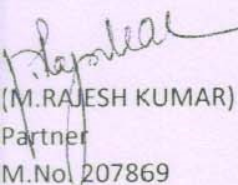 (M.RAJESH KUMAR)
Partner
M.No. 207869